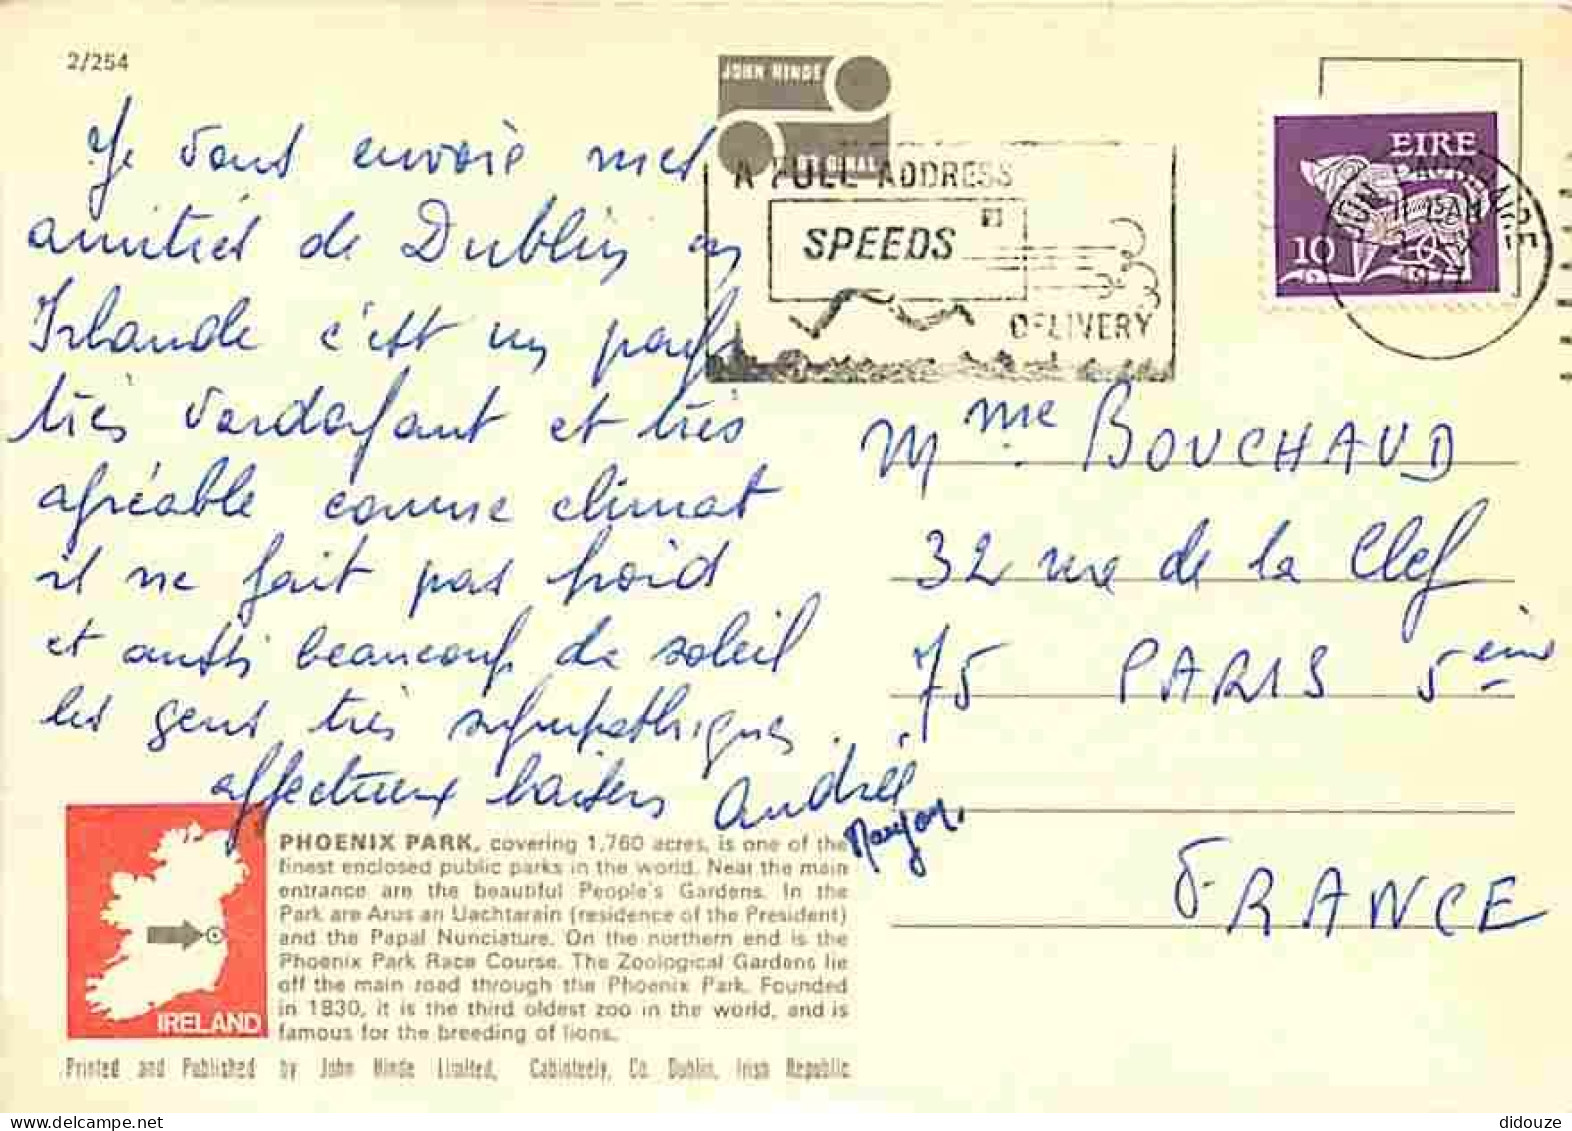 2/254
JOHN HINDE
ORIGINAL
A FULL ADDRESS
SPEEDS
DELIVERY
EIRE
10
1977
Je vous envoie mes
amitiés de Dublin en
Irlande c'est un pays
très verdoyant et très
agréable comme climat
il ne fait pas froid
et aussi beaucoup de soleil
les gens très sympathiques.
affectueux baisers Andrée
Mme BOUCHAUD
32 rue de la Clef
75 PARIS 5ème
FRANCE
PHOENIX PARK, covering 1,760 acres, is one of the
finest enclosed public parks in the world. Near the main
entrance are the beautiful People's Gardens. In the
Park are Arus an Uachtarain (residence of the President)
and the Papal Nunciature. On the northern end is the
Phoenix Park Race Course. The Zoological Gardens lie
off the main road through the Phoenix Park. Founded
in 1830, it is the third oldest zoo in the world, and is
famous for the breeding of lions.
IRELAND
Printed and Published by John Hinde Limited, Cabinteely, Co. Dublin, Irish Republic
didouze